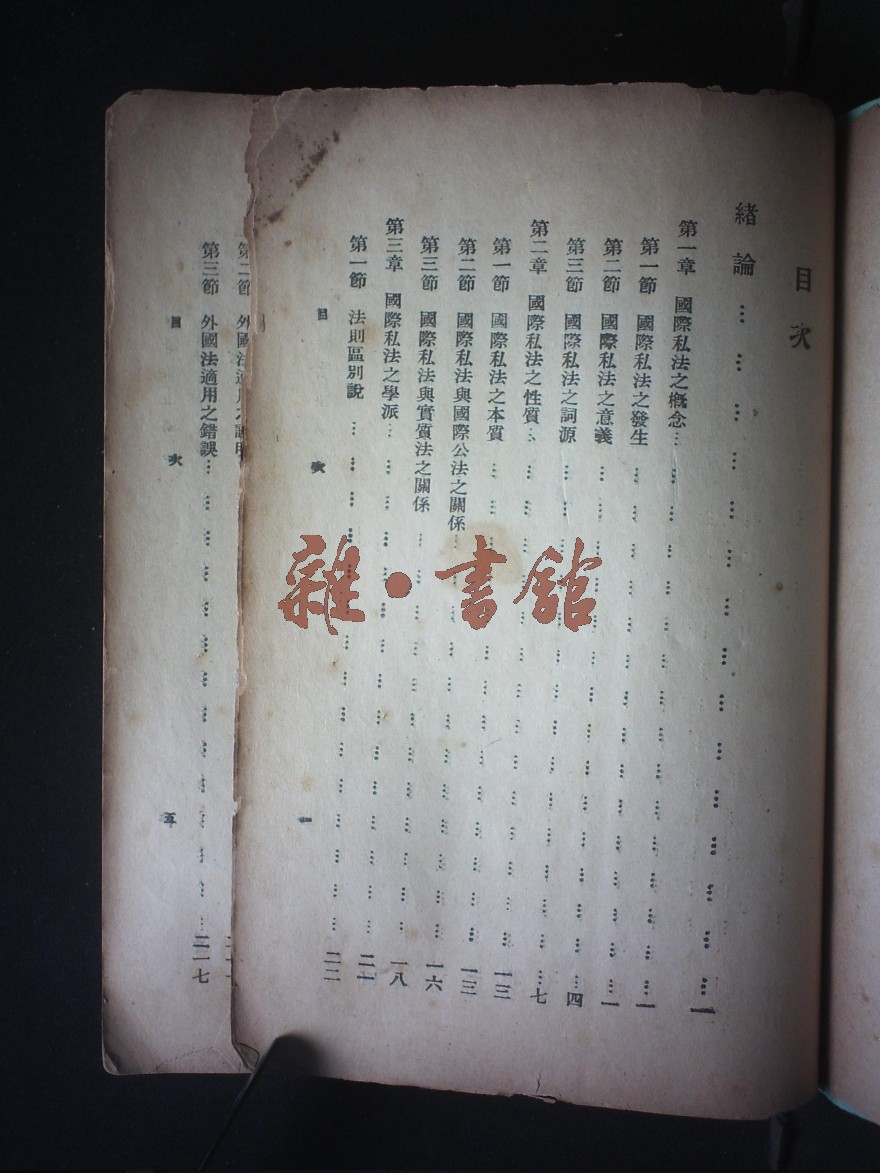 目次
緒論………………………………………一
第一章 國際私法之概念………………………………………一
第一節 國際私法之發生………………………………………一
第二節 國際私法之意義………………………………………四
第三節 國際私法之詞源………………………………………七
第二章 國際私法之性質………………………………………一三
第一節 國際私法之本質………………………………………一三
第二節 國際私法與國際公法之關係………………………………………一六
第三節 國際私法與實質法之關係………………………………………一八
第三章 國際私法之學派………………………………………二一
第一節 法則區別說………………………………………二二
目次 一
第二節 外國法適用之
第三節 外國法適用之錯誤………………………………………二一七
目次 五
雜·書館